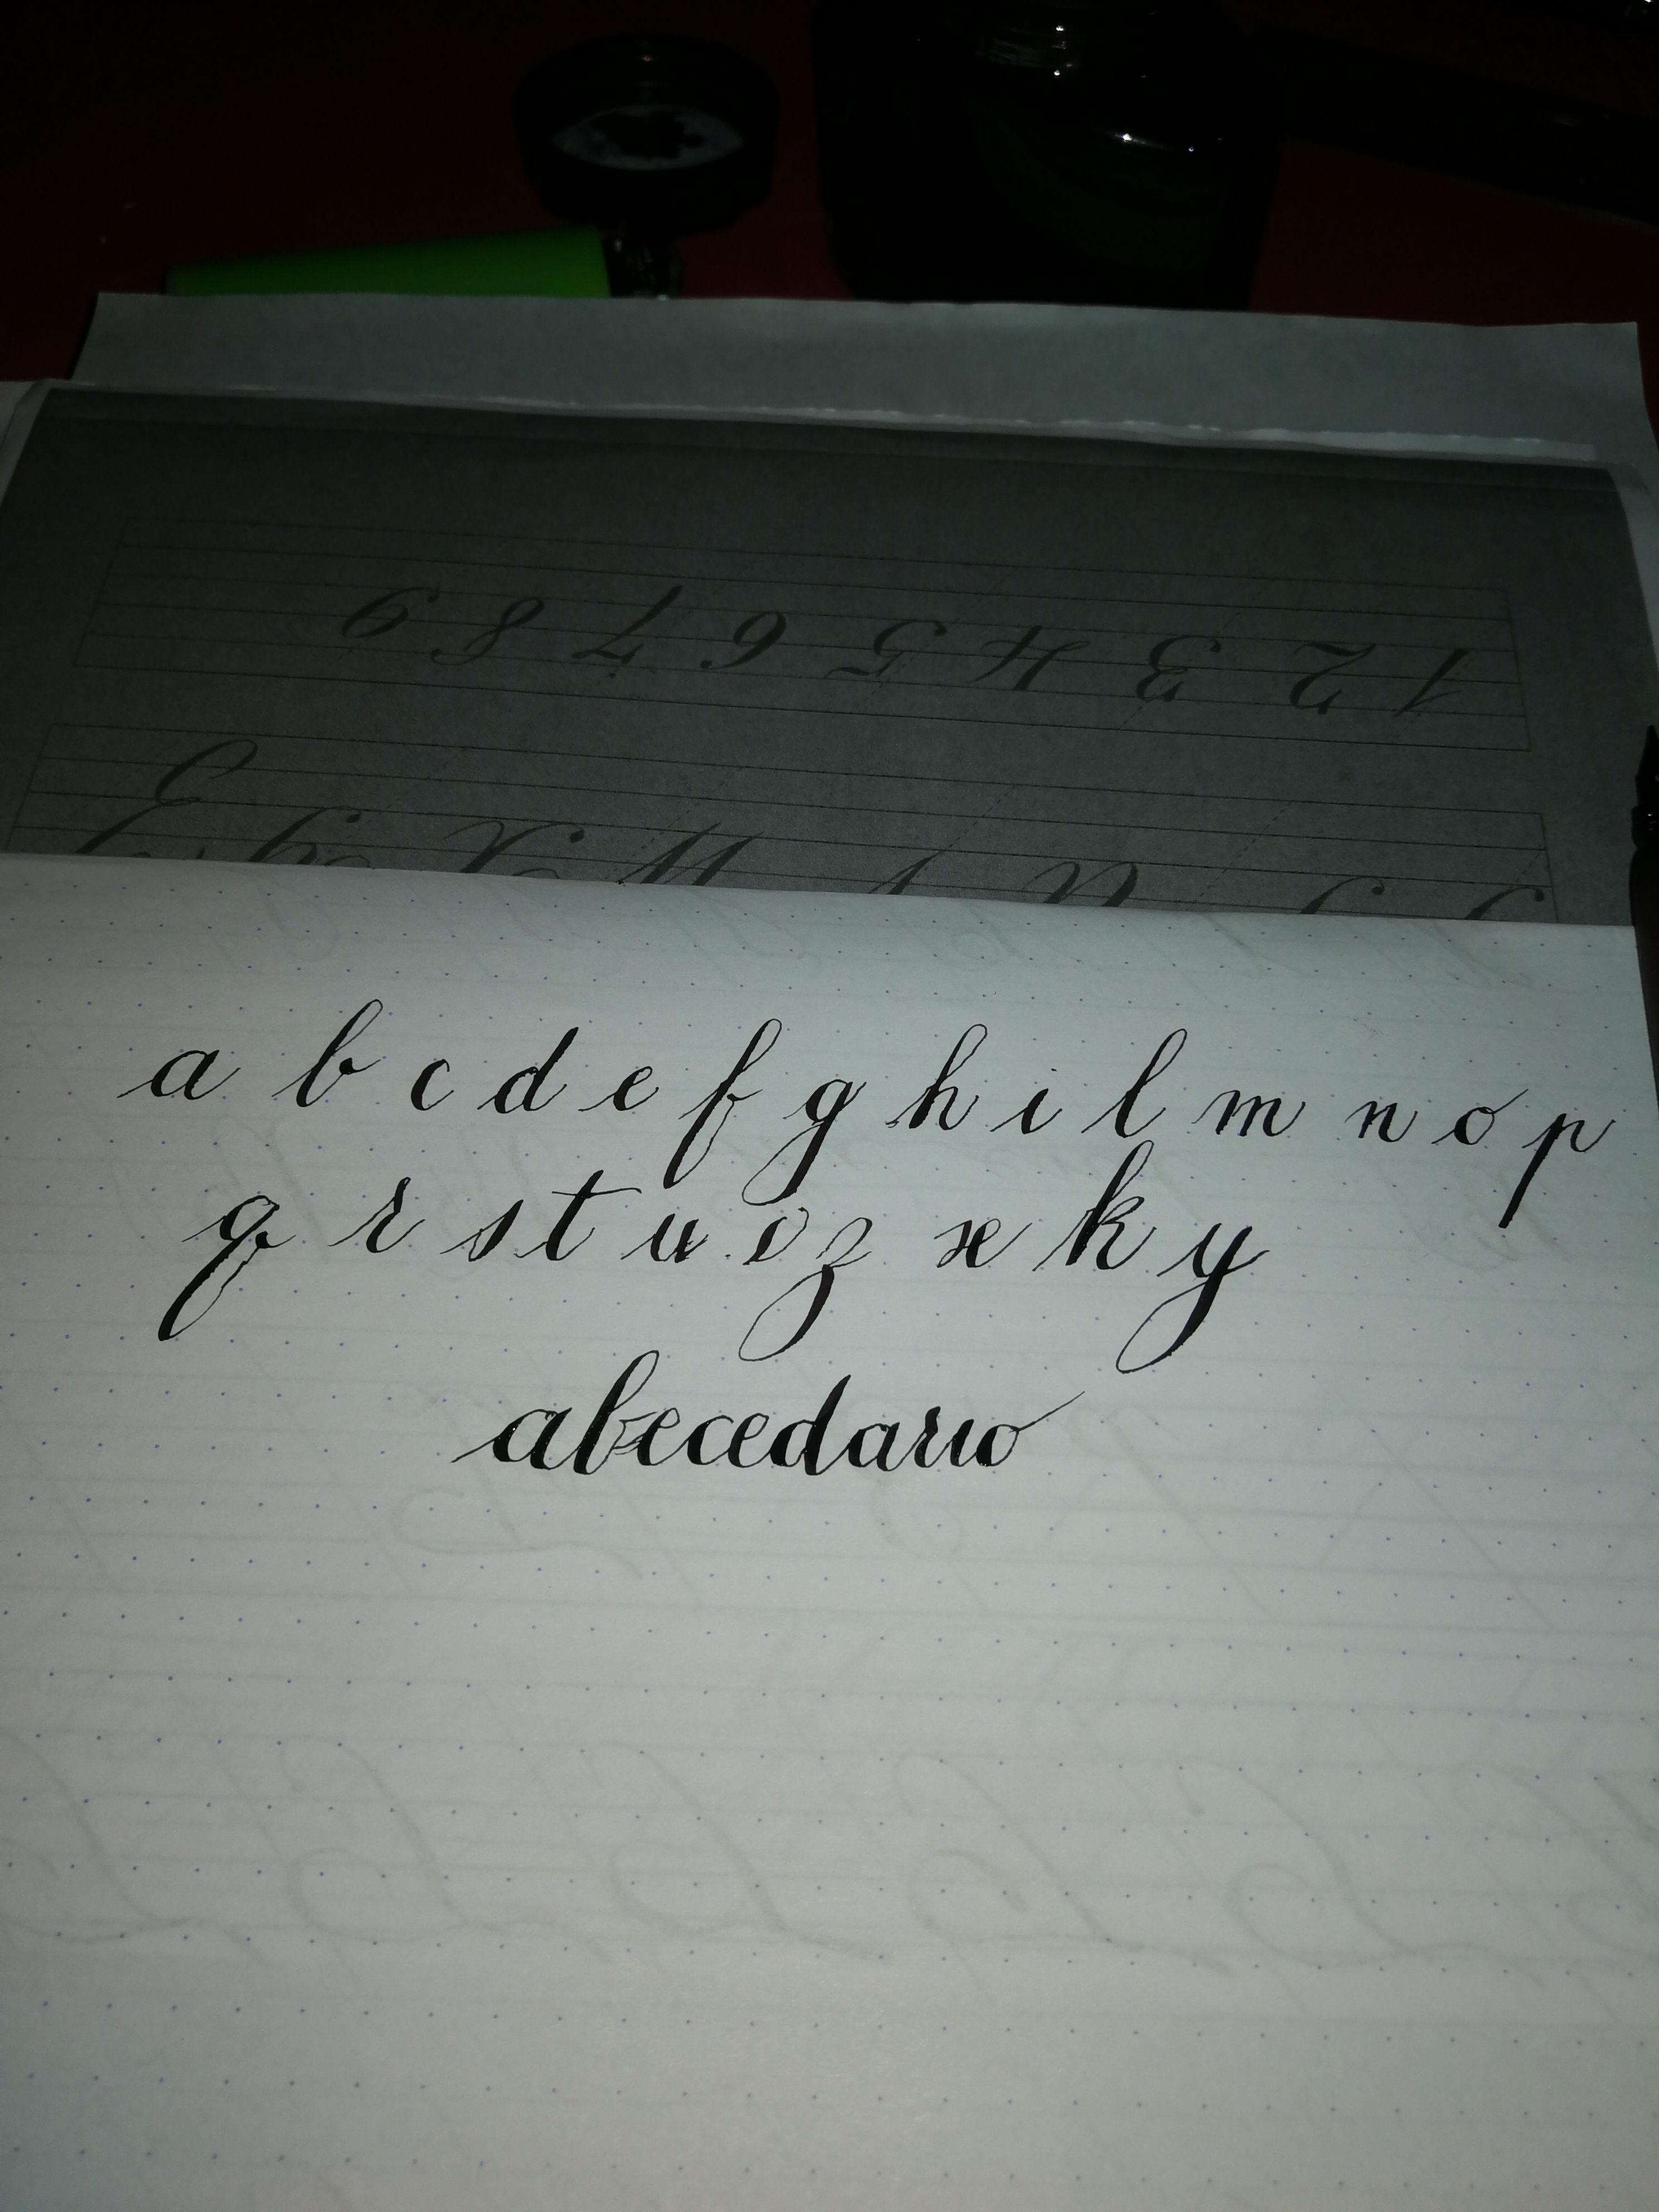 1 2 3 4 5 6 7 8 9
a b c d e f g h i l m n o p
q r s t u v z x k y
abecedario